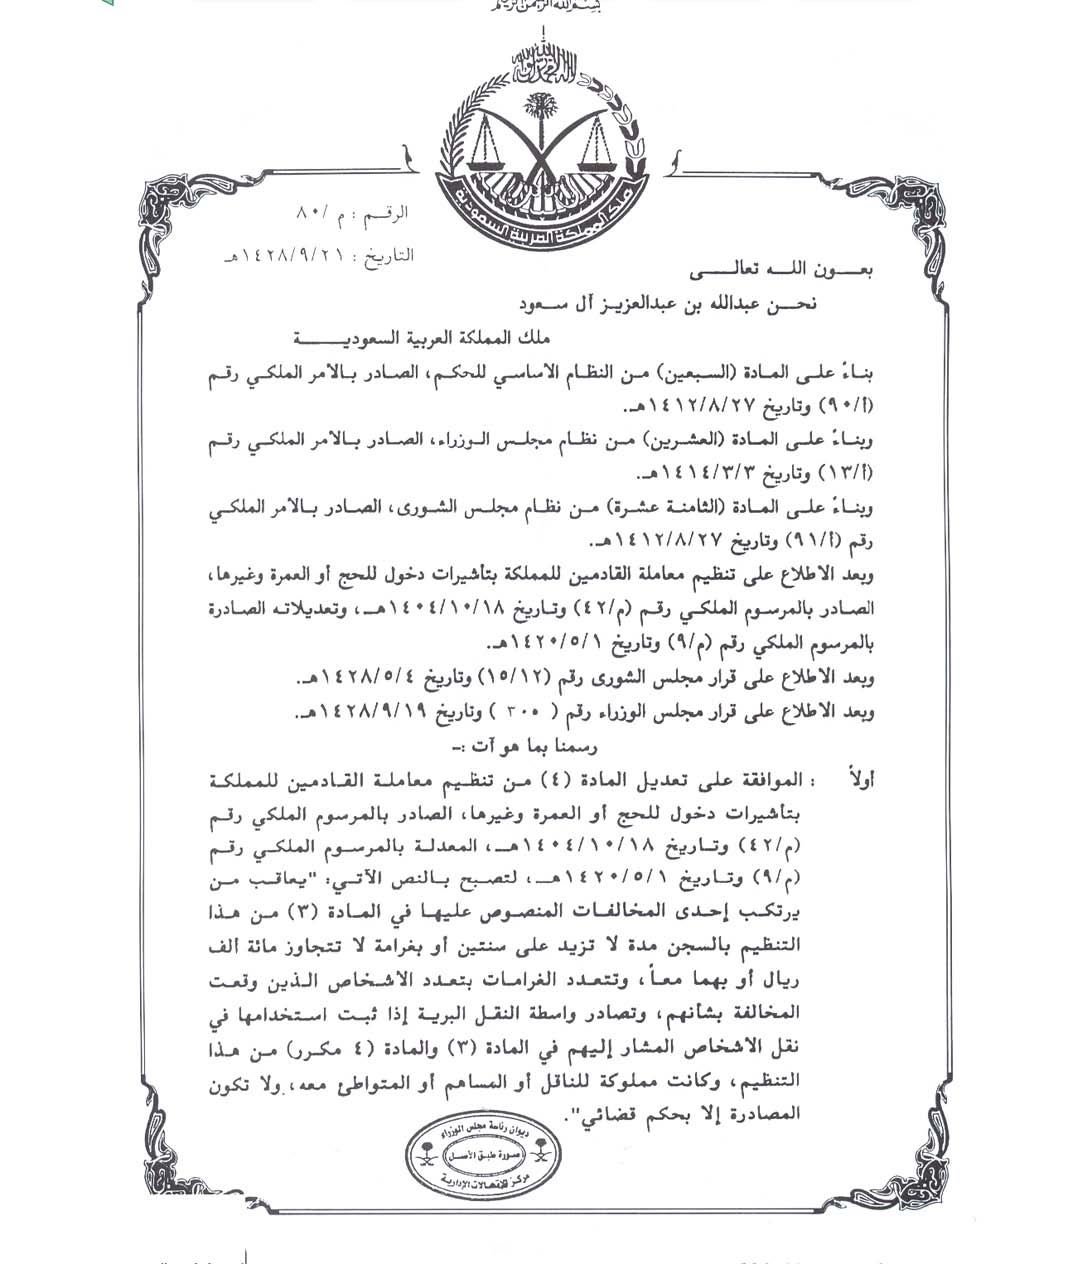 بسم الله الرحمن الرحيم
لا إله إلا الله محمد رسول الله
ملك المملكة العربية السعودية
الرقم : م /٨٠
التاريخ : ١٤٢٨/٩/٢١هـ
بعـــون اللــه تعالــــى
نحــن عبدالله بن عبدالعزيز آل سعود
ملك المملكة العربية السعوديــــــة
بناءً علـى المـادة (السـبعين) مـن النظام الاساسي للحكم، الصادر بـالامر الملكي رقـم
(أ/٩٠) وتاريخ ١٤١٢/٨/٢٧هـ.
وبنـاءً علـى المـادة (العشـرين) مـن نظـام مجلـس الـوزراء، الصـادر بـالامر الملكي رقـم
(أ/١٣) وتاريخ ١٤١٤/٣/٣هـ.
وبنـاءً علـى المـادة (الثامنـة عشـرة) مـن نظام مجلـس الشورى، الصـادر بـالامر الملكـي
رقم (أ/٩١) وتاريخ ١٤١٢/٨/٢٧هـ.
وبعد الاطلاع على تنظيم معاملة القادمين للمملكة بتأشيرات دخول للحج أو العمرة وغيرها،
الصادر بالمرسوم الملكـي رقـم (م/٤٢) وتـاريخ ١٤٠٤/١٠/١٨هـ، وتعديلاتـه الصادرة
بالمرسوم الملكي رقم (م/٩) وتاريخ ١٤٢٠/٥/١هـ.
وبعد الاطلاع على قرار مجلس الشورى رقم (١٥/١٢) وتاريخ ١٤٢٨/٥/٤هـ.
وبعد الاطلاع على قرار مجلس الوزراء رقم ( ٣٠٥ ) وتاريخ ١٤٢٨/٩/١٩هـ.
رسمنا بما هو آت :-
أولاً : الموافقة على تعديل المادة (٤) مـن تنظيم معاملـة القـادمين للمملكة
بتأشيرات دخول للحج أو العمرة وغيرها، الصادر بالمرسوم الملكي رقم
(م/٤٢) وتـاريخ ١٤٠٤/١٠/١٨هـ، المعدلة بالمرسوم الملكي رقم
(م/٩) وتـاريخ ١٤٢٠/٥/١هـ، لتصبح بـالنص الآتـي: "يعاقـب مـن
يرتكـب إحـدى المخالفـات المنصوص عليهـا في المـادة (٣) مـن هـذا
التنظيم بالسجن مدة لا تزيد على سنتين أو بغرامة لا تتجاوز مائة ألف
ريال أو بهما معـاً، وتتعدد الغرامـات بتعـدد الاشـخاص الـذين وقعت
المخالفة بشأنهم، وتصادر واسطة النقل البرية إذا ثبت استخدامها في
نقل الاشخاص المشار إليهم في المادة (٣) والمادة (٤ مكـرر) مـن هـذا
التنظيم، وكانت مملوكة للناقل أو المساهم أو المتواطئ معه، ولا تكون
المصادرة إلا بحكم قضائي".
ديوان رئاسة مجلس الوزراء
صورة طبق الأصل
مركز الإتصالات الإدارية